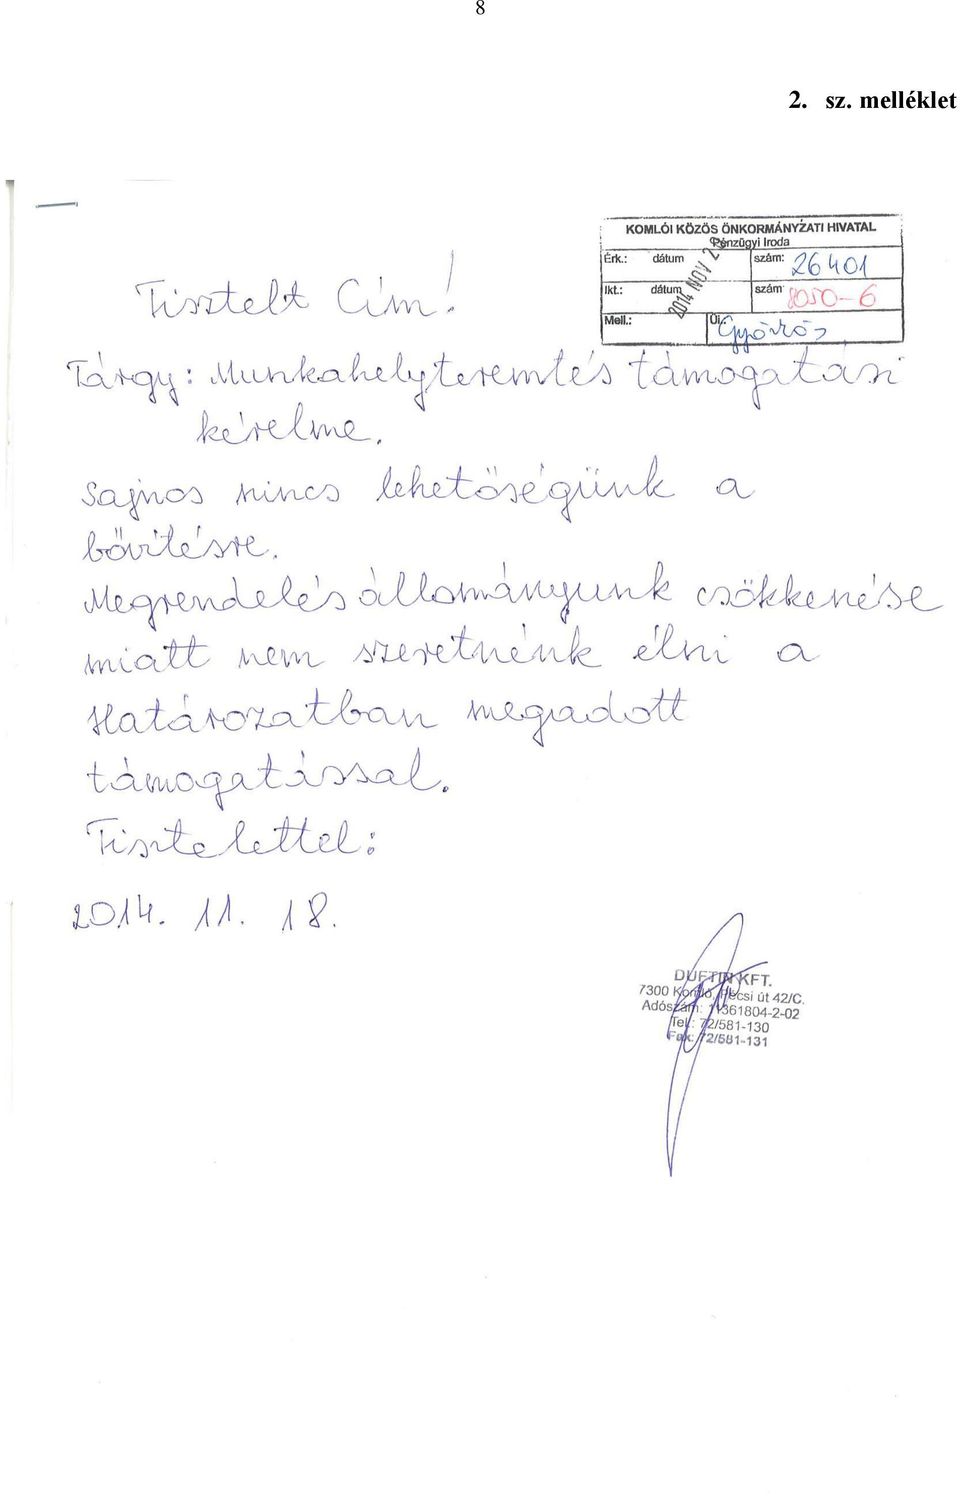 8
2. sz. melléklet
KOMLÓI KÖZÖS ÖNKORMÁNYZATI HIVATAL
Pénzügyi Iroda
Érk.: dátum 2014 NOV szám: 26401
Ikt.: dátum szám: 8050-6
Mell.: Üi.:
Tisztelt Cím!
Tárgy: Munkahelyteremtés támogatási
kérelme.
Sajnos nincs lehetőségünk a
bővítésre.
Megrendelés állományunk csökkenése
miatt nem szeretnénk élni a
Határozatban megadott
támogatással.
Tisztelettel:
2014. 11. 18.
DUFTIN KFT.
7300 Komló, Pécsi út 42/C.
Adószám: 11361804-2-02
Tel.: 72/581-130
Fax: 72/581-131